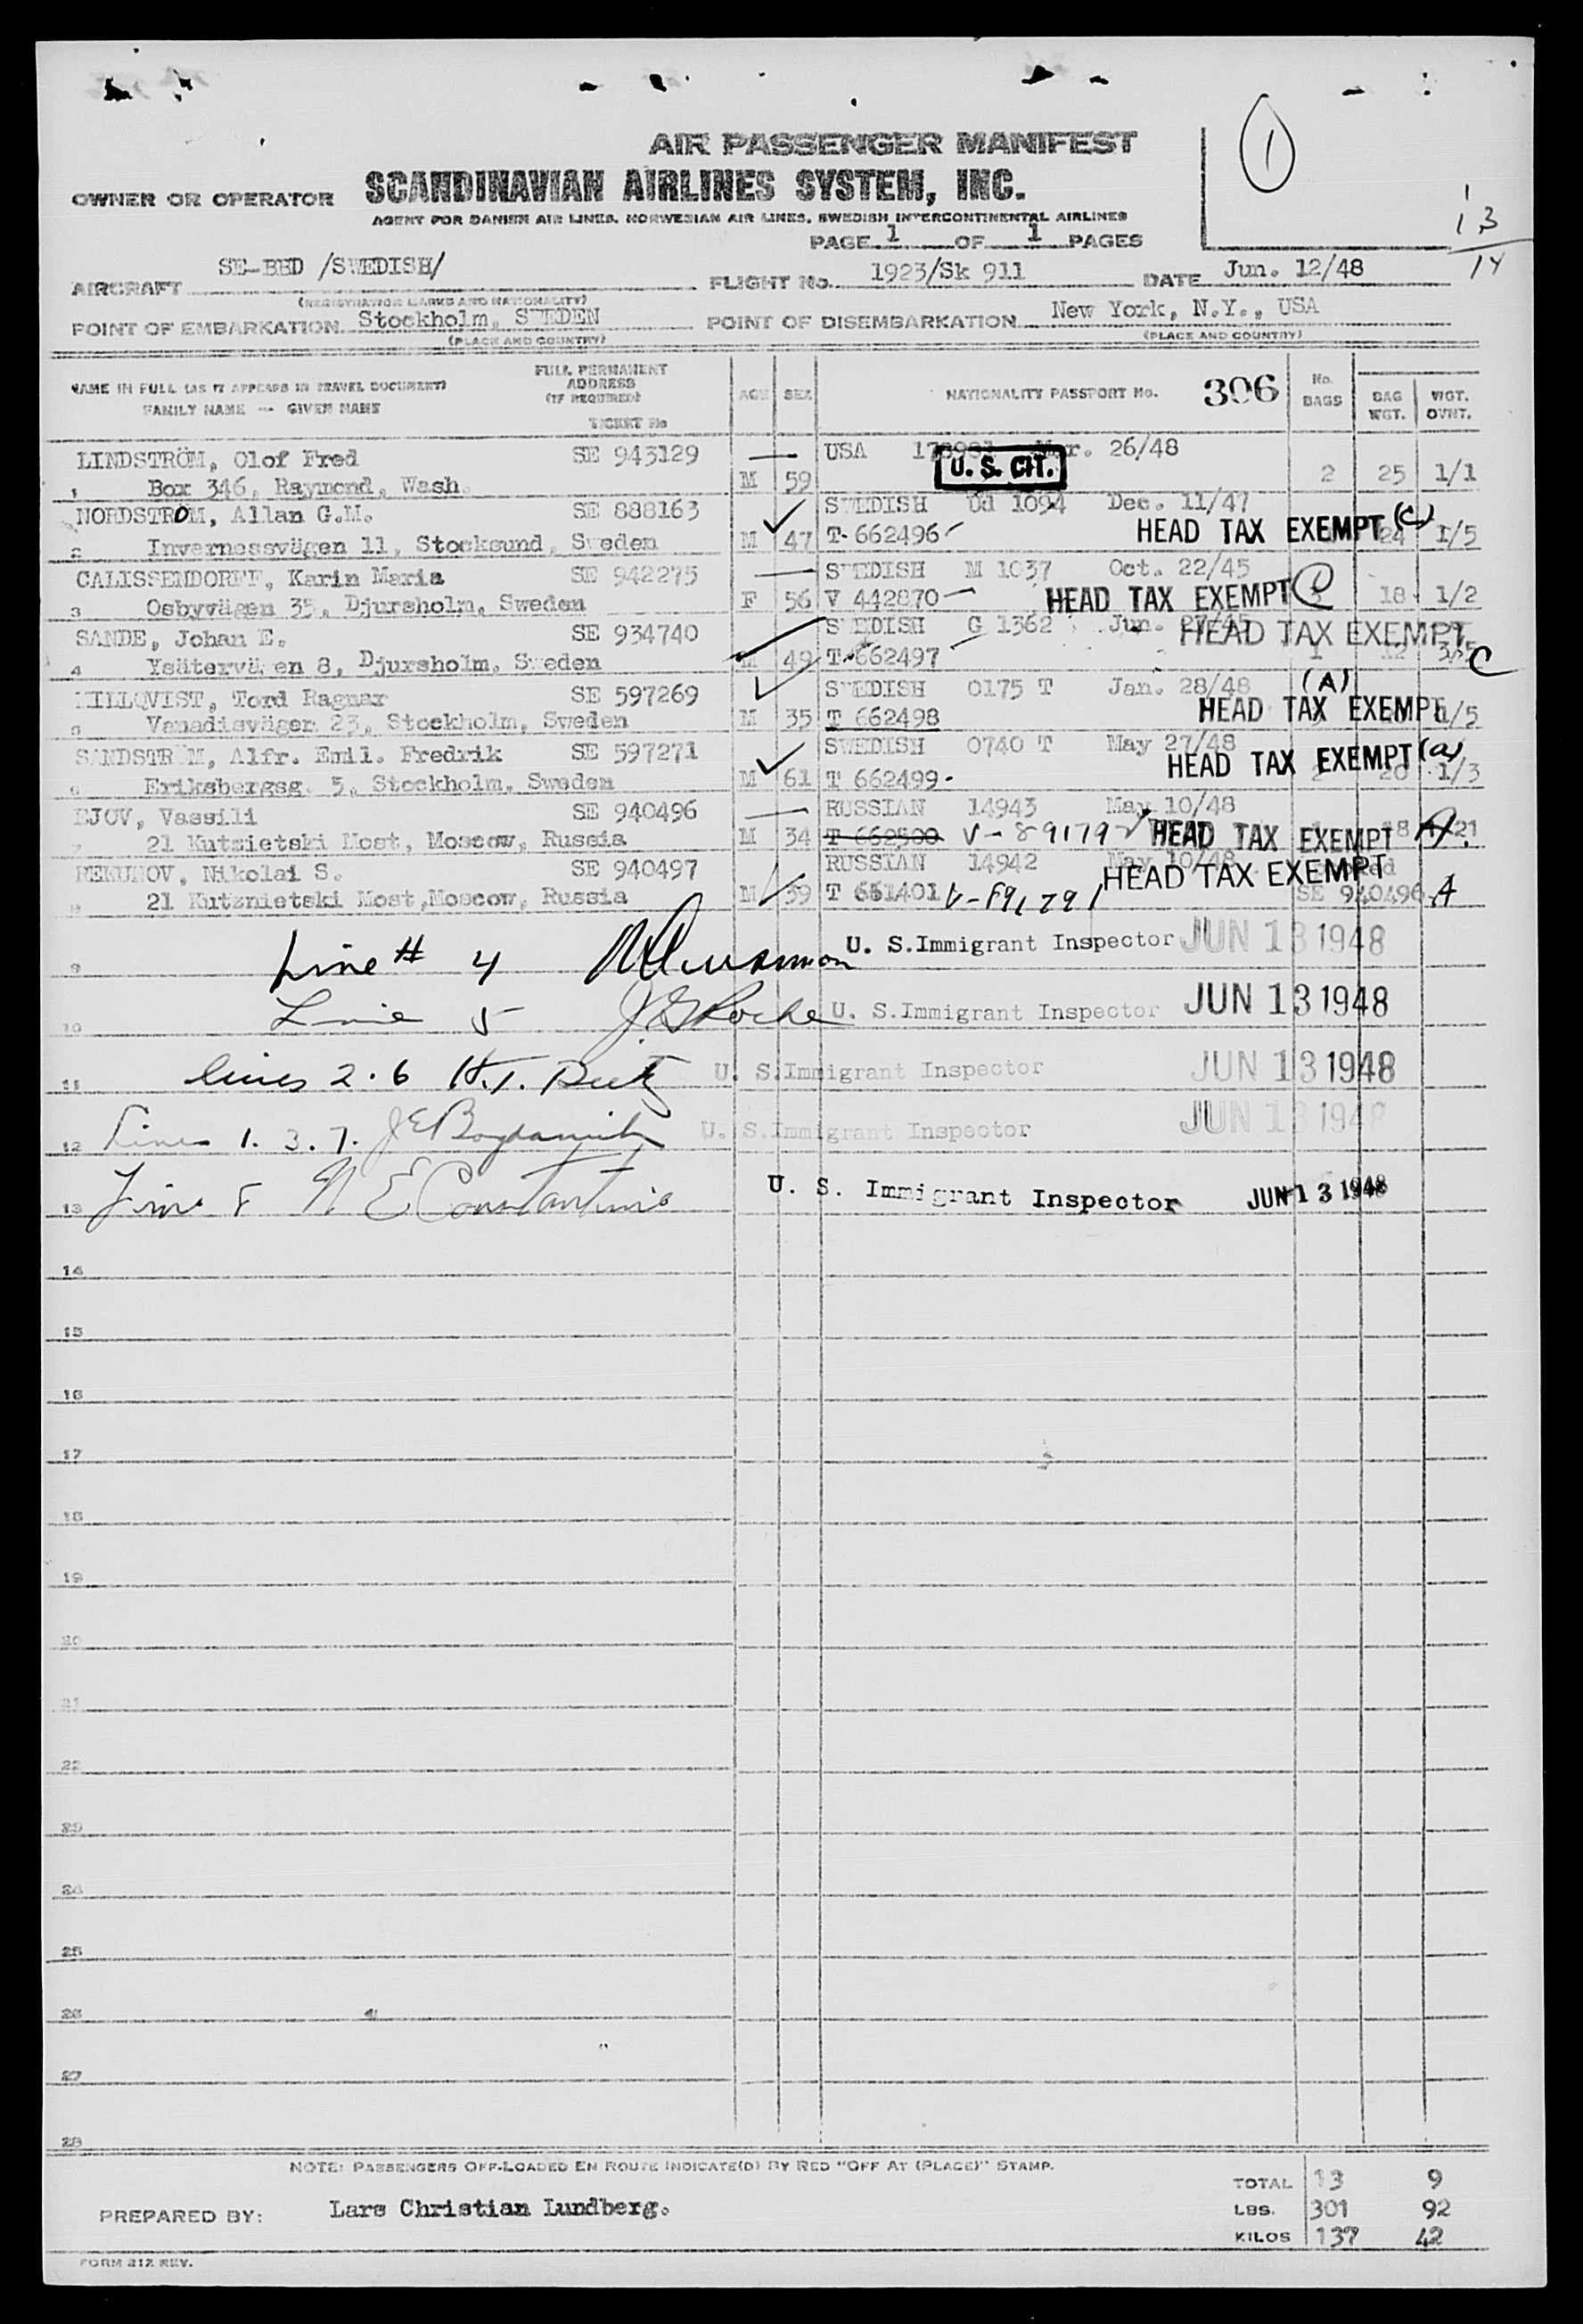 1
AIR PASSENGER MANIFEST
OWNER OR OPERATOR SCANDINAVIAN AIRLINES SYSTEM, INC.
AGENT FOR DANISH AIR LINES, NORWEGIAN AIR LINES, SWEDISH INTERCONTINENTAL AIRLINES
13
14
PAGE 1 OF 1 PAGES
AIRCRAFT SE-BBD /SWEDISH/ FLIGHT No. 1923/Sk 911 DATE Jun. 12/48
(REGISTRATION MARKS AND NATIONALITY)
POINT OF EMBARKATION Stockholm, SWEDEN POINT OF DISEMBARKATION New York, N.Y., USA
(PLACE AND COUNTRY) (PLACE AND COUNTRY)
NAME IN FULL (AS IT APPEARS IN TRAVEL DOCUMENT) FAMILY NAME — GIVEN NAME
FULL PERMANENT ADDRESS (IF REQUIRED) TICKET No
AGE SEX NATIONALITY PASSPORT No. 306 No. BAGS BAG WGT. WGT. OVNT.
LINDSTRÖM, Olof Fred SE 943129 USA Mar. 26/48
U. S. CIT.
1 Box 346, Raymond, Wash. M 59 2 25 1/1
NORDSTROM, Allan G.M. SE 888163 SWEDISH Ud 1094 Dec. 11/47
2 Invernessvägen 11, Stocksund, Sweden M 47 T-662496 HEAD TAX EXEMPT (C) 24 1/5
CALISSENDORFF, Karin Maria SE 942275 SWEDISH M 1037 Oct. 22/45
3 Osbyvägen 35, Djursholm, Sweden F 56 V 442870 HEAD TAX EXEMPT 18 1/2
SANDE, Johan E. SE 934740 SWEDISH G 1362 Jun. HEAD TAX EXEMPT
4 Ysätervägen 8, Djursholm, Sweden M 49 T-662497 1 12 C
HILLQVIST, Tord Ragnar SE 597269 SWEDISH 0175 T Jan. 28/48 (A)
5 Vanadisvägen 23, Stockholm, Sweden M 35 T 662498 HEAD TAX EXEMPT 1/5
SANDSTRÖM, Alfr. Emil. Fredrik SE 597271 SWEDISH 0740 T May 27/48
6 Eriksbergsg. 5, Stockholm, Sweden M 61 T 662499 HEAD TAX EXEMPT (a) 2 20 1/3
EJOV, Vassili SE 940496 RUSSIAN 14943 May 10/48
7 21 Kutznietski Most, Moscow, Russia M 34 T 662500 V-891792 HEAD TAX EXEMPT 18 A. 21
REMUNOV, Nikolai S. SE 940497 RUSSIAN 14942 May 10/48
HEAD TAX EXEMPT
8 21 Kutznietski Most, Moscow, Russia M 39 T 661401 V-891791 SE 940496 A
9 Line # 4 U. S. Immigrant Inspector JUN 13 1948
10 Line 5 J G Roche U. S. Immigrant Inspector JUN 13 1948
11 lines 2.6 U. S. Immigrant Inspector JUN 13 1948
12 Lines 1. 3. 7. U. S. Immigrant Inspector JUN 13 1948
13 Line 8 N E Constantine U. S. Immigrant Inspector JUN 13 1948
14
15
16
17
18
19
20
21
22
23
24
25
26
27
28
NOTE: PASSENGERS OFF-LOADED EN ROUTE INDICATE(D) BY RED "OFF AT (PLACE)" STAMP.
TOTAL 13 9
PREPARED BY: Lars Christian Lundberg. LBS. 301 92
KILOS 137 42
FORM 212 REV.